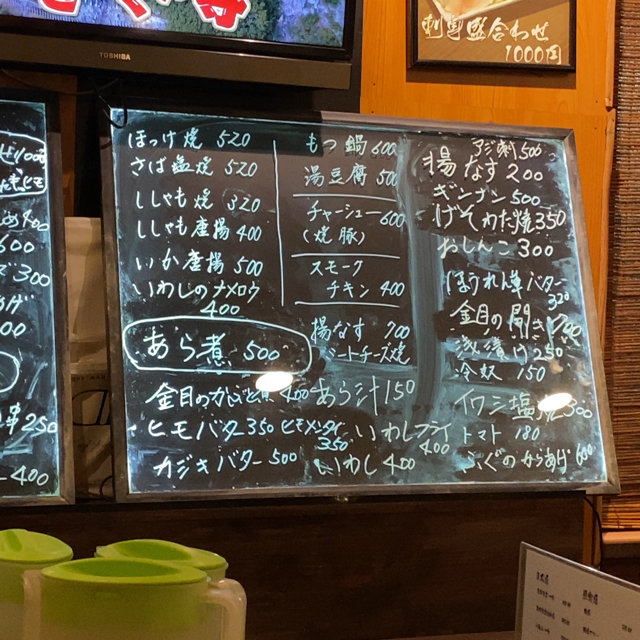 TOSHIBA
刺身盛合わせ
1000円
ほっけ焼 520
さば塩焼 520
ししゃも焼 320
ししゃも唐揚 400
いか唐揚 500
いわしのナメロウ
400
あら煮 500
もつ鍋 600
湯豆腐 500
チャーシュー 600
(焼豚)
スモーク
チキン 400
揚なす 700
ミートチーズ焼
アジ刺 500
揚なす 200
ギンナン 500
げそわた焼 350
おしんこ 300
ほうれん草バター
320
金目の開き
浅漬け 250
冷奴 150
イワシ塩焼 300
トマト 180
ふぐのからあげ 600
金目のかぶと煮 400
あら汁 150
ヒモバター 350
ヒモメンタイ
350
いわしフライ
400
カジキバター 500
いわし 400
400
600
300
250
400